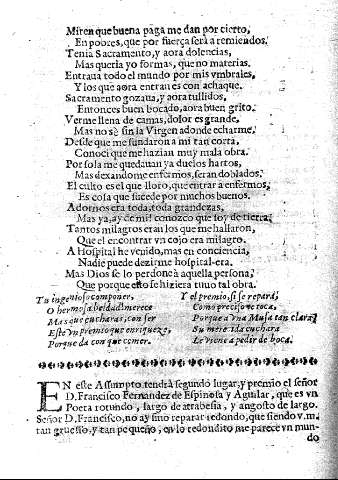 Miren que buena paga me dan por cierto,
En pobres, que por fuerça será a remiendos.
Tenia Sacramento, y aora dolencias,
Mas queria yo formas, que no materias.
Entraua todo el mundo por mis vmbrales,
Y los que aora entran es con achaque.
Sacramento gozaua, y aora tullidos,
Entonces buen bocado, aora buen grito.
Verme llena de camas, dolor es grande,
Mas no sè sin la Virgen adonde echarme.
Desde que me fundaron a mi tan corta,
Conoci que me hazian muy mala obra.
Por sola me quedauan ya duelos hartos,
Mas dexandome enfermos, seran doblados.
El culto es el que lloro, que entrar a enfermos,
Es cosa que sucede por muchos buenos.
Adornos era toda, toda grandezas,
Mas ya, ay de mi! conozco que soy de tierra,
Tantos milagros eran los que me hallaron,
Que el encontrar vn cojo era milagro.
A Hospital he venido, mas en conciencia,
Nadie puede dezirme hospital-era.
Mas Dios se lo perdone à aquella persona,
Que porque esto se hiziera tuuo tal obra.
Tu ingenioso componer,
O hermosa beldad! merece
Mas que cucharas, con ser
Este vn premio que enriqueze,
Porque da con que comer.
Y el premio, si se repara,
Como preciso te toca,
Porque a vna Musa tan clara,
Su mere ida cuchara
Le viene a pedir de boca.
EN este Assumpto tendrà segundo lugar, y premio el señor
D. Francisco Fernandez de Espinosa y Aguilar, que es vn
Poeta rotundo, largo de atrabesia, y angosto de largo.
Señor D. Francisco, no ay sino reparar redondo, que siendo v.m.
tan gruesso, y tan pequeño, en lo redondito me parece vn mun-
do